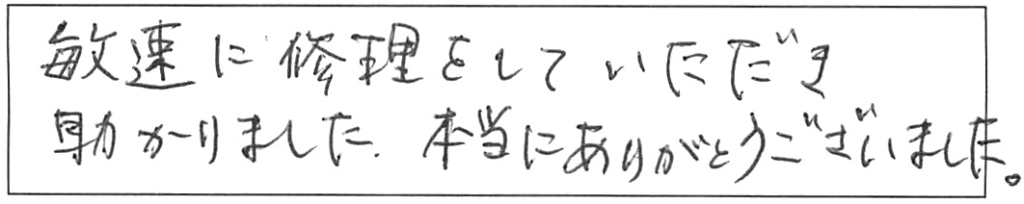 敏速に修理をしていただき
助かりました. 本当にありがとうございました。